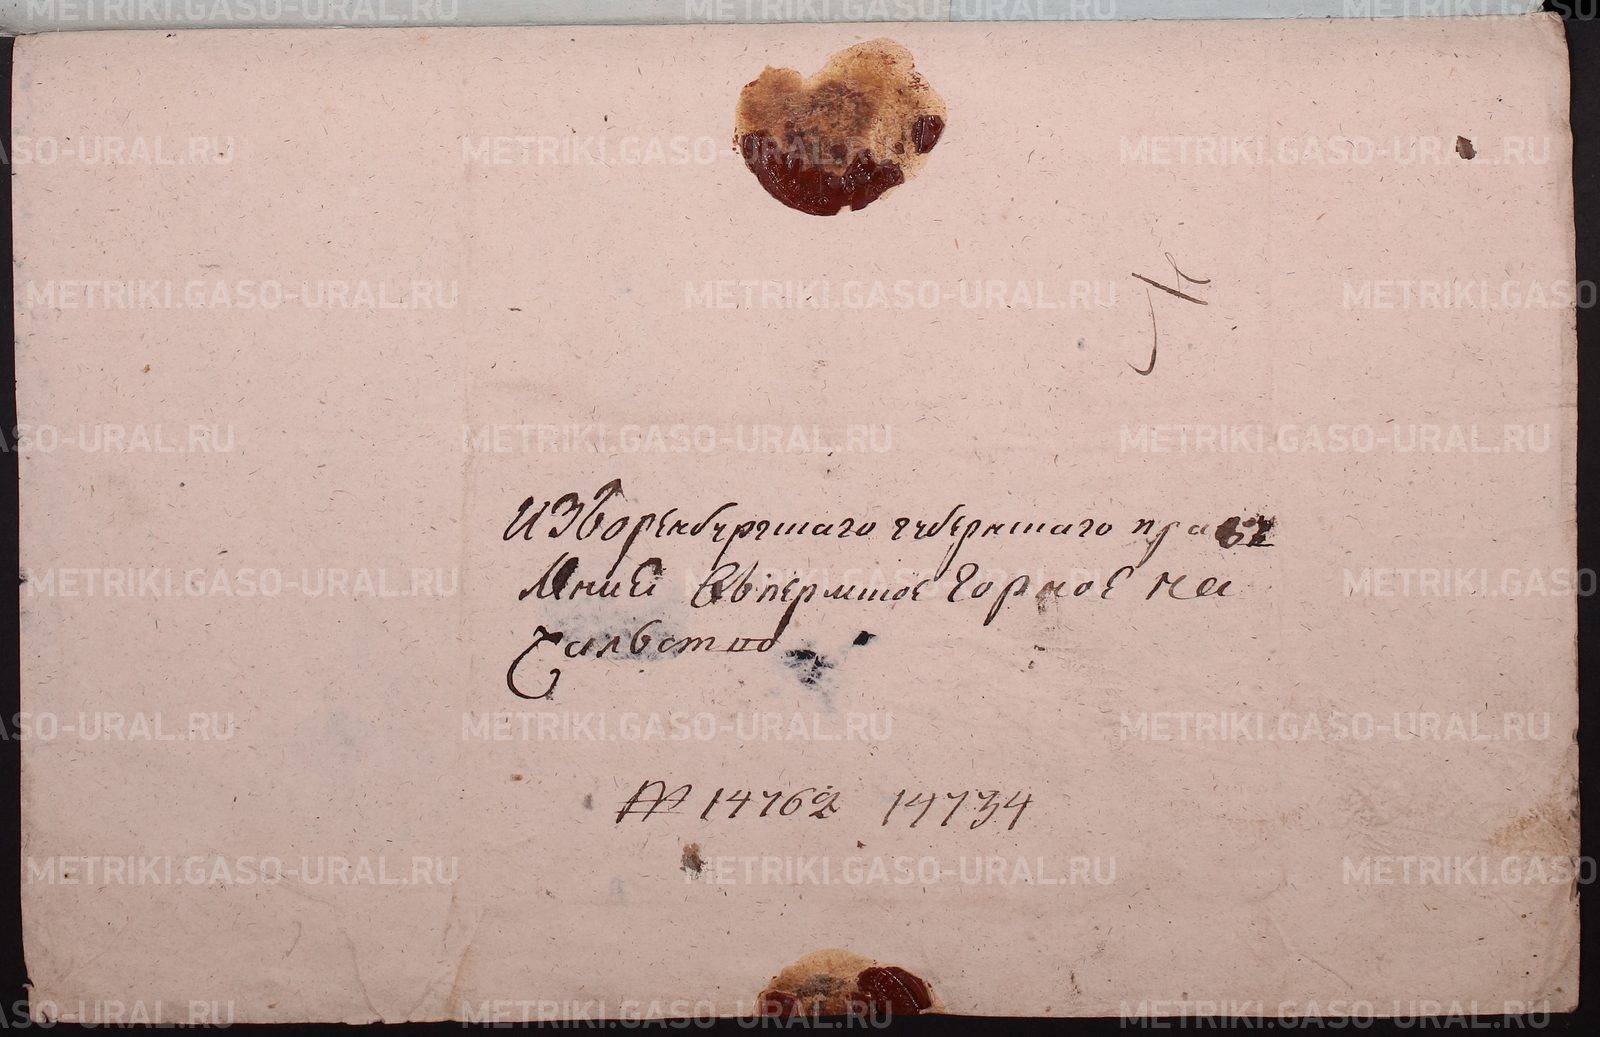 Изъ оренбургскаго губернскаго правъ
Лѣнией въ пермское Горное на
Чальство
№ 14762 14734
METRIKI.GASO-URAL.RU